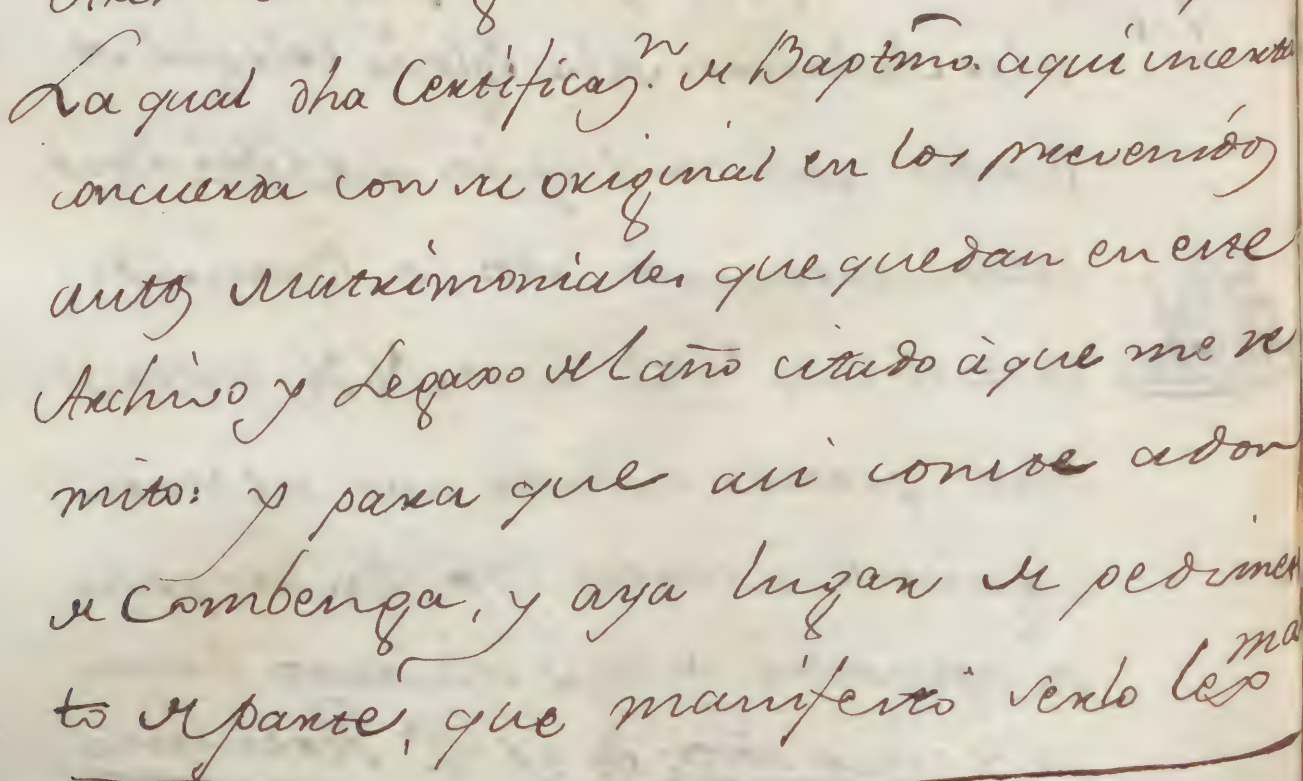 La qual dha Certificaz.n de Baptmo. aqui incerta
concuerda con su original en los prevenidos
autos Matrimoniales que quedan en este
Archivo y Legaxo del año citado à que me re
mito: y para que asi conste adon
de Combenga, y aya lugar de pedimen
to de parte, que manifestó serlo lexma